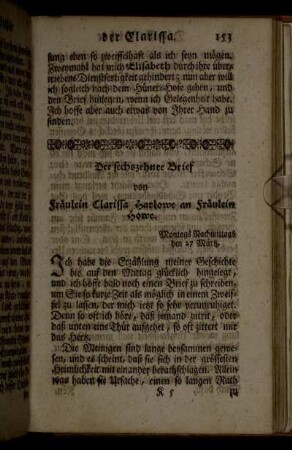 der Clarissa. 153
sung eben so zweiffelhaft als ich seyn mögen.
Zweymahl hat mich Elisabeth durch ihre übertriebene
Dienstfertigkeit gehindert; nun aber will
ich sogleich nach dem Hüner-Hofe gehen, und
den Brief hinlegen, wenn ich Gelegenheit habe.
Ich hoffe aber auch etwas von Ihrer Hand zu
finden.
Der sechszehnte Brief
von
Fräulein Clarissa Harlowe an Fräulein
Howe.
Montags Nachmittags
den 27 Märtz.
Ich habe die Erzählung meiner Geschichte
bis auf den Mittag glücklich hingelegt,
und ich hoffe bald noch einen Brief zu schreiben,
um Sie so kurze Zeit als möglich in einem Zweifel
zu lassen, der mich jetzt so sehr verunruhiget.
Denn so oft ich höre, daß jemand tritt, oder
daß unten eine Thür aufgehet, so oft zittert mir
das Hertz.
Die Meinigen sind lange beysammen gewesen,
und es scheint, daß sie sich in der grössesten
Heimlichkeit mit einander berathschlagen. Allein
was haben sie Ursache, einen so langen Rath
K 5 zu